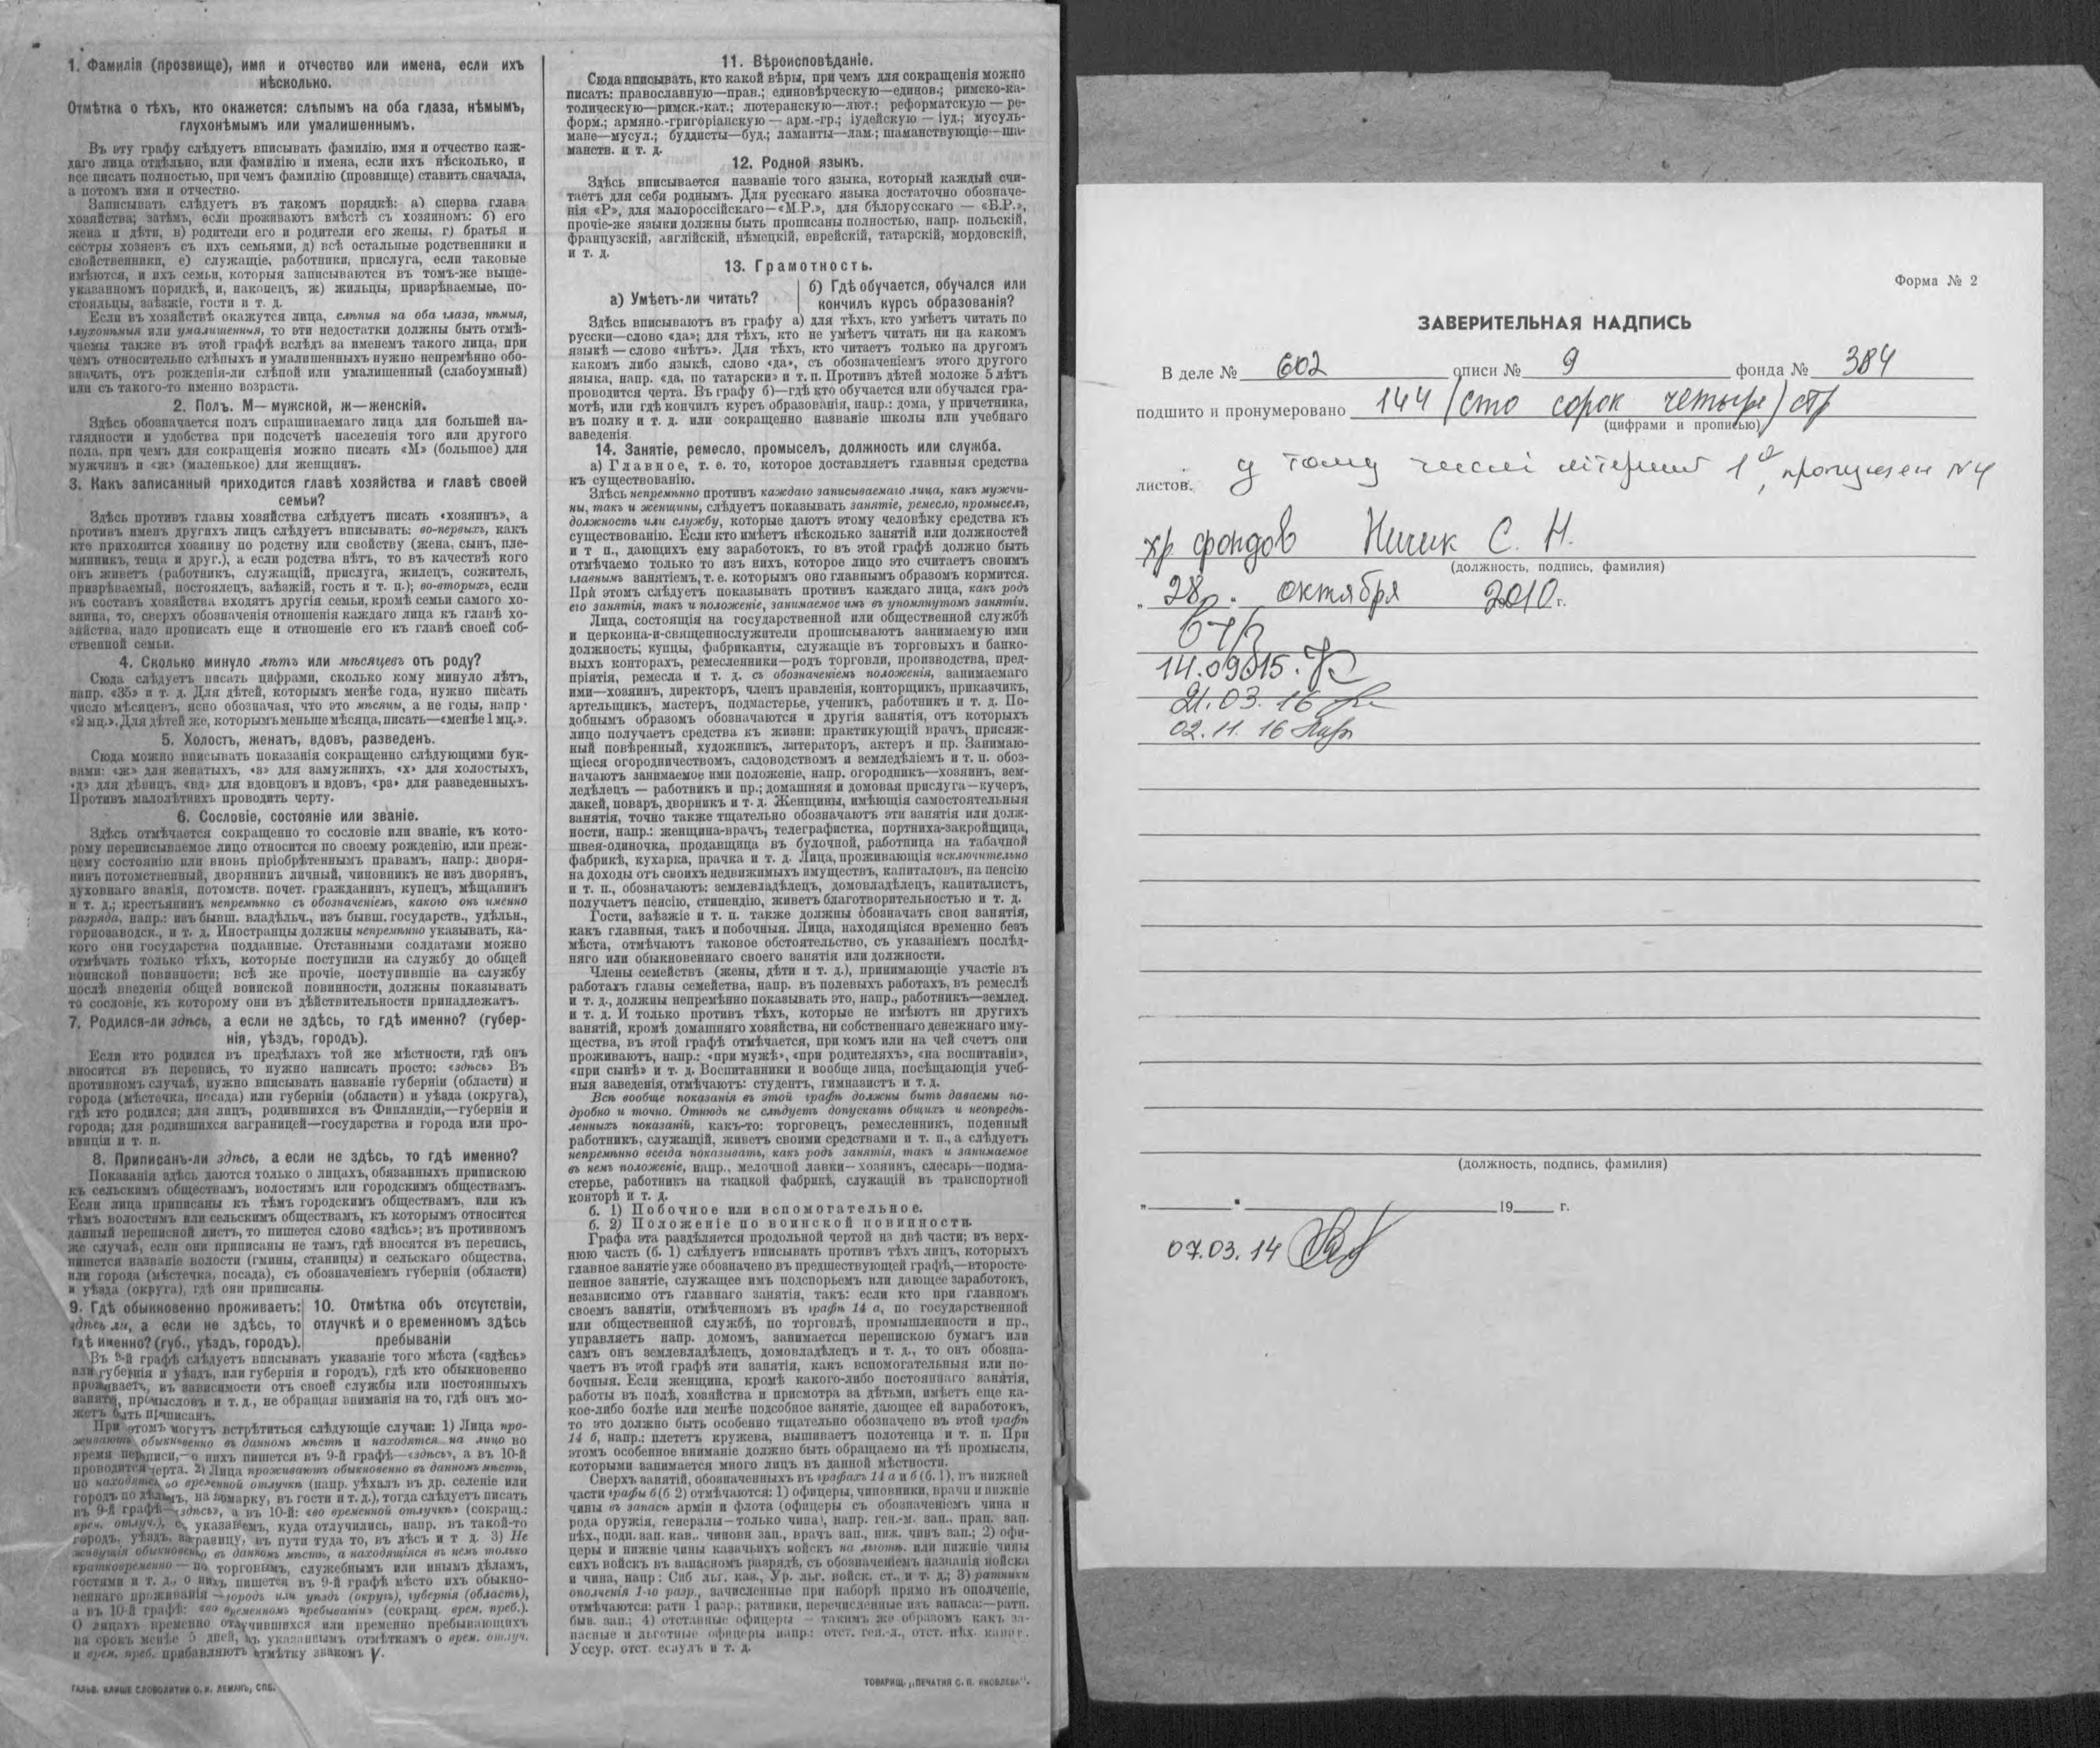 1. Фамилія (прозвище), имя и отчество или имена, если ихъ
нѣсколько.
Отмѣтка о тѣхъ, кто окажется: слѣпымъ на оба глаза, нѣмымъ,
глухонѣмымъ или умалишеннымъ.
Въ эту графу слѣдуетъ вписывать фамилію, имя и отчество каж-
даго лица отдѣльно, или фамилію и имена, если ихъ нѣсколько, и
все писать полностью, при чемъ фамилію (прозвище) ставить сначала,
а потомъ имя и отчество.
Записывать слѣдуетъ въ такомъ порядкѣ: а) сперва глава
хозяйства; затѣмъ, если проживаютъ вмѣстѣ съ хозяиномъ: б) его
жена и дѣти, в) родители его и родители его жены, г) братья и
сестры хозяевъ съ ихъ семьями, д) всѣ остальные родственники и
свойственники, е) служащіе, работники, прислуга, если таковые
имѣются, и ихъ семьи, которыя записываются въ томъ-же выше-
указанномъ порядкѣ, и, наконецъ, ж) жильцы, призрѣваемые, по-
стояльцы, заѣзжіе, гости и т. д.
Если въ хозяйствѣ окажутся лица, слѣпыя на оба глаза, нѣмыя,
глухонѣмыя или умалишенныя, то эти недостатки должны быть отмѣ-
чаемы также въ этой графѣ вслѣдъ за именемъ такого лица, при
чемъ относительно слѣпыхъ и умалишенныхъ нужно непремѣнно обо-
значать, отъ рожденія-ли слѣпой или умалишенный (слабоумный)
или съ такого-то именно возраста.
2. Полъ. М—мужской, ж—женскій.
Здѣсь обозначается полъ спрашиваемаго лица для большей на-
глядности и удобства при подсчетѣ населенія того или другого
пола, при чемъ для сокращенія можно писать «М» (большое) для
мужчинъ и «ж» (маленькое) для женщинъ.
3. Какъ записанный приходится главѣ хозяйства и главѣ своей
семьи?
Здѣсь противъ главы хозяйства слѣдуетъ писать «хозяинъ», а
противъ именъ другихъ лицъ слѣдуетъ вписывать: во-первыхъ, какъ
кто приходится хозяину по родству или свойству (жена, сынъ, пле-
мянникъ, теща и друг.), а если родства нѣтъ, то въ качествѣ кого
онъ живетъ (работникъ, служащій, прислуга, жилецъ, сожитель,
призрѣваемый, постоялецъ, заѣзжій, гость и т. п.); во-вторыхъ, если
въ составъ хозяйства входятъ другія семьи, кромѣ семьи самого хо-
зяина, то, сверхъ обозначенія отношенія каждаго лица къ главѣ хо-
зяйства, надо прописать еще и отношеніе его къ главѣ своей соб-
ственной семьи.
4. Сколько минуло лѣтъ или мѣсяцевъ отъ роду?
Сюда слѣдуетъ писать цифрами, сколько кому минуло лѣтъ,
напр. «35» и т. д. Для дѣтей, которымъ менѣе года, нужно писать
число мѣсяцевъ, ясно обозначая, что это мѣсяцы, а не годы, напр.
«2 мц.». Для дѣтей же, которымъ меньше мѣсяца, писать—«менѣе 1 мц.».
5. Холостъ, женатъ, вдовъ, разведенъ.
Сюда можно вписывать показанія сокращенно слѣдующими бук-
вами: «ж» для женатыхъ, «з» для замужнихъ, «х» для холостыхъ,
«д» для дѣвицъ, «вд» для вдовцовъ и вдовъ, «рз» для разведенныхъ.
Противъ малолѣтнихъ проводить черту.
6. Сословіе, состояніе или званіе.
Здѣсь отмѣчается сокращенно то сословіе или званіе, къ кото-
рому переписываемое лицо относится по своему рожденію, или преж-
нему состоянію или вновь пріобрѣтеннымъ правамъ, напр.: дворя-
нинъ потомственный, дворянинъ личный, чиновникъ не изъ дворянъ,
духовнаго званія, потомств. почет. гражданинъ, купецъ, мѣщанинъ
и т. д.; крестьянинъ непремѣнно съ обозначеніемъ, какого онъ именно
разряда, напр.: изъ бывш. владѣльч., изъ бывш. государств., удѣльн.,
горнозаводск., и т. д. Иностранцы должны непремѣнно указывать, ка-
кого они государства подданные. Отставными солдатами можно
отмѣчать только тѣхъ, которые поступили на службу до общей
воинской повинности; всѣ же прочіе, поступившіе на службу
послѣ введенія общей воинской повинности, должны показывать
то сословіе, къ которому они въ дѣйствительности принадлежатъ.
7. Родился-ли здѣсь, а если не здѣсь, то гдѣ именно? (губер-
нія, уѣздъ, городъ).
Если кто родился въ предѣлахъ той же мѣстности, гдѣ онъ
вносится въ перепись, то нужно написать просто: «здѣсь» Въ
противномъ случаѣ, нужно вписывать названіе губерніи (области) и
города (мѣстечка, посада) или губерніи (области) и уѣзда (округа),
гдѣ кто родился; для лицъ, родившихся въ Финляндіи,—губерніи и
города; для родившихся заграницей—государства и города или про-
винціи и т. п.
8. Приписанъ-ли здѣсь, а если не здѣсь, то гдѣ именно?
Показанія здѣсь даются только о лицахъ, обязанныхъ припискою
къ сельскимъ обществамъ, волостямъ или городскимъ обществамъ.
Если лица приписаны къ тѣмъ городскимъ обществамъ, или къ
тѣмъ волостямъ или сельскимъ обществамъ, къ которымъ относится
данный переписной листъ, то пишется слово «здѣсь»; въ противномъ
же случаѣ, если они приписаны не тамъ, гдѣ вносятся въ перепись,
пишется названіе волости (гмины, станицы) и сельскаго общества,
или города (мѣстечка, посада), съ обозначеніемъ губерніи (области)
и уѣзда (округа), гдѣ они приписаны.
9. Гдѣ обыкновенно проживаетъ:
здѣсь ли, а если не здѣсь, то
гдѣ именно? (губ., уѣздъ, городъ).
10. Отмѣтка объ отсутствіи,
отлучкѣ и о временномъ здѣсь
пребываніи
Въ 9-й графѣ слѣдуетъ вписывать указаніе того мѣста («здѣсь»
или губернія и уѣздъ, или губернія и городъ), гдѣ кто обыкновенно
проживаетъ, въ зависимости отъ своей службы или постоянныхъ
занятій, промысловъ и т. д., не обращая вниманія на то, гдѣ онъ мо-
жетъ быть приписанъ.
При этомъ могутъ встрѣтиться слѣдующіе случаи: 1) Лица про-
живаютъ обыкновенно въ данномъ мѣстѣ и находятся на лицо во
время переписи,—о нихъ пишется въ 9-й графѣ—«здѣсь», а въ 10-й
проводится черта. 2) Лица проживаютъ обыкновенно въ данномъ мѣстѣ,
но находятся во временной отлучкѣ (напр. уѣхалъ въ др. селеніе или
городъ по дѣламъ, на ярмарку, въ гости и т. д.), тогда слѣдуетъ писать
въ 9-й графѣ—«здѣсь», а въ 10-й: «во временной отлучкѣ» (сокращ.:
врем. отлуч.), съ указаніемъ, куда отлучились, напр. въ такой-то
городъ, уѣздъ, заграницу, въ пути туда то, въ лѣсъ и т д. 3) Не
живущія обыкновенно въ данномъ мѣстѣ, а находящіяся въ немъ только
кратковременно — по торговымъ, служебнымъ или инымъ дѣламъ,
гостями и т. д., о нихъ пишется въ 9-й графѣ мѣсто ихъ обыкно-
веннаго проживанія—городъ или уѣздъ (округъ), губернія (область),
а въ 10-й графѣ: «во временномъ пребываніи» (сокращ. врем. преб.).
О лицахъ временно отлучившихся или временно пребывающихъ
на срокъ менѣе 5 дней, къ указаннымъ отмѣткамъ о врем. отлуч.
и врем. преб. прибавляютъ отмѣтку знакомъ V.
ГАЛЬВ. КЛИШЕ СЛОВОЛИТНИ О. И. ЛЕМАНЪ, СПБ.
11. Вѣроисповѣданіе.
Сюда вписывать, кто какой вѣры, при чемъ для сокращенія можно
писать: православную—прав.; единовѣрческую—единов.; римско-ка-
толическую—римск.-кат.; лютеранскую—лют.; реформатскую—ре-
форм.; армяно.-григоріанскую—арм.-гр.; іудейскую—іуд.; мусуль-
мане—мусул.; буддисты—буд.; ламаиты—лам.; шаманствующіе—ша-
манств. и т. д.
12. Родной языкъ.
Здѣсь вписывается названіе того языка, который каждый счи-
таетъ для себя роднымъ. Для русскаго языка достаточно обозначе-
нія «Р», для малороссійскаго—«М.Р.», для бѣлорусскаго — «Б.Р.»,
прочіе-же языки должны быть прописаны полностью, напр. польскій,
французскій, англійскій, нѣмецкій, еврейскій, татарскій, мордовскій,
и т. д.
13. Грамотность.
а) Умѣетъ-ли читать?
б) Гдѣ обучается, обучался или
кончилъ курсъ образованія?
Здѣсь вписываютъ въ графу а) для тѣхъ, кто умѣетъ читать по
русски—слово «да»; для тѣхъ, кто не умѣетъ читать ни на какомъ
языкѣ—слово «нѣтъ». Для тѣхъ, кто читаетъ только на другомъ
какомъ либо языкѣ, слово «да», съ обозначеніемъ этого другого
языка, напр. «да, по татарски» и т. п. Противъ дѣтей моложе 5 лѣтъ
проводится черта. Въ графу б)—гдѣ кто обучается или обучался гра-
мотѣ, или гдѣ кончилъ курсъ образованія, напр.: дома, у причетника,
въ полку и т. д. или сокращенно названіе школы или учебнаго
заведенія.
14. Занятіе, ремесло, промыселъ, должность или служба.
а) Главное, т. е. то, которое доставляетъ главныя средства
къ существованію.
Здѣсь непремѣнно противъ каждаго записываемаго лица, какъ мужчи-
ны, такъ и женщины, слѣдуетъ показывать занятіе, ремесло, промыселъ,
должность или службу, которые даютъ этому человѣку средства къ
существованію. Если кто имѣетъ нѣсколько занятій или должностей
и т п., дающихъ ему заработокъ, то въ этой графѣ должно быть
отмѣчаемо только то изъ нихъ, которое лицо это считаетъ своимъ
главнымъ занятіемъ, т. е. которымъ оно главнымъ образомъ кормится.
При этомъ слѣдуетъ показывать противъ каждаго лица, какъ родъ
его занятія, такъ и положеніе, занимаемое имъ въ упомянутомъ занятіи.
Лица, состоящія на государственной или общественной службѣ
и церковна-и-священнослужители прописываютъ занимаемую ими
должность; купцы, фабриканты, служащіе въ торговыхъ и банко-
выхъ конторахъ, ремесленники—родъ торговли, производства, пред-
пріятія, ремесла и т. д. съ обозначеніемъ положенія, занимаемаго
ими—хозяинъ, директоръ, членъ правленія, конторщикъ, приказчикъ,
артельщикъ, мастеръ, подмастерье, ученикъ, работникъ и т. д. По-
добнымъ образомъ обозначаются и другія занятія, отъ которыхъ
лицо получаетъ средства къ жизни: практикующій врачъ, присяж-
ный повѣренный, художникъ, литераторъ, актеръ и пр. Занимаю-
щіеся огородничествомъ, садоводствомъ и земледѣліемъ и т. п. обоз-
начаютъ занимаемое ими положеніе, напр. огородникъ—хозяинъ, зем-
ледѣлецъ — работникъ и пр.; домашняя и домовая прислуга—кучеръ,
лакей, поваръ, дворникъ и т. д. Женщины, имѣющія самостоятельныя
занятія, точно также тщательно обозначаютъ эти занятія или долж-
ности, напр.: женщина-врачъ, телеграфистка, портниха-закройщица,
швея-одиночка, продавщица въ булочной, работница на табачной
фабрикѣ, кухарка, прачка и т. д. Лица, проживающія исключительно
на доходы отъ своихъ недвижимыхъ имуществъ, капиталовъ, на пенсію
и т. п., обозначаютъ: землевладѣлецъ, домовладѣлецъ, капиталистъ,
получаетъ пенсію, стипендію, живетъ благотворительностью и т. д.
Гости, заѣзжіе и т. п. также должны обозначать свои занятія,
какъ главныя, такъ и побочныя. Лица, находящіяся временно безъ
мѣста, отмѣчаютъ таковое обстоятельство, съ указаніемъ послѣд-
няго или обыкновеннаго своего занятія или должности.
Члены семействъ (жены, дѣти и т. д.), принимающіе участіе въ
работахъ главы семейства, напр. въ полевыхъ работахъ, въ ремеслѣ
и т. д., должны непремѣнно показывать это, напр., работникъ—землед.
и т. д. И только противъ тѣхъ, которые не имѣютъ ни другихъ
занятій, кромѣ домашняго хозяйства, ни собственнаго денежнаго иму-
щества, въ этой графѣ отмѣчается, при комъ или на чей счетъ они
проживаютъ, напр.: «при мужѣ», «при родителяхъ», «на воспитаніи»,
«при сынѣ» и т. д. Воспитанники и вообще лица, посѣщающія учеб-
ныя заведенія, отмѣчаютъ: студентъ, гимназистъ и т. д.
Всѣ вообще показанія въ этой графѣ должны быть даваемы по-
дробно и точно. Отнюдь не слѣдуетъ допускать общихъ и неопредѣ-
ленныхъ показаній, какъ-то: торговецъ, ремесленникъ, поденный
работникъ, служащій, живетъ своими средствами и т. п., а слѣдуетъ
непремѣнно всегда показывать, какъ родъ занятія, такъ и занимаемое
въ немъ положеніе, напр., мелочной лавки—хозяинъ, слесарь—подма-
стерье, работникъ на ткацкой фабрикѣ, служащій въ транспортной
конторѣ и т. д.
б. 1) Побочное или вспомогательное.
б. 2) Положеніе по воинской повинности.
Графа эта раздѣляется продольной чертой на двѣ части; въ верх-
нюю часть (б. 1) слѣдуетъ вписывать противъ тѣхъ лицъ, которыхъ
главное занятіе уже обозначено въ предшествующей графѣ,—второсте-
пенное занятіе, служащее имъ подспорьемъ или дающее заработокъ,
независимо отъ главнаго занятія, такъ: если кто при главномъ
своемъ занятіи, отмѣченномъ въ графѣ 14 а, по государственной
или общественной службѣ, по торговлѣ, промышленности и пр.,
управляетъ напр. домомъ, занимается перепискою бумагъ или
самъ онъ землевладѣлецъ, домовладѣлецъ и т. д., то онъ обозна-
чаетъ въ этой графѣ эти занятія, какъ вспомогательныя или по-
бочныя. Если женщина, кромѣ какого-либо постояннаго занятія,
работы въ полѣ, хозяйства и присмотра за дѣтьми, имѣетъ еще ка-
кое-либо болѣе или менѣе подсобное занятіе, дающее ей заработокъ,
то это должно быть особенно тщательно обозначено въ этой графѣ
14 б, напр.: плететъ кружева, вышиваетъ полотенца и т. п. При
этомъ особенное вниманіе должно быть обращаемо на тѣ промыслы,
которыми занимается много лицъ въ данной мѣстности.
Сверхъ занятій, обозначенныхъ въ графахъ 14 а и б (б. 1), въ нижней
части графы б (б 2) отмѣчаются: 1) офицеры, чиновники, врачи и нижніе
чины въ запасѣ арміи и флота (офицеры съ обозначеніемъ чина и
рода оружія, генералы—только чина), напр. ген.-м. зап., прап. зап.
пѣх., подп. зап. кав., чиновн зап., врачъ зап., ниж. чинъ зап.; 2) офи-
церы и нижніе чины казачьихъ войскъ на льготѣ или нижніе чины
сихъ войскъ въ запасномъ разрядѣ, съ обозначеніемъ названія войска
и чина, напр: Сиб льг. каз., Ур. льг. войск. ст., и т. д.; 3) ратники
ополченія 1-го разр., зачисленные при наборѣ прямо въ ополченіе,
отмѣчаются: ратн 1 разр.; ратники, перечисленные изъ запаса:—ратн.
быв. зап.; 4) отставные офицеры — такимъ же образомъ какъ за-
пасные и льготные офицеры напр.: отст. ген.-л., отст. пѣх. капит.
Уссур. отст. есаулъ и т. д.
ТОВАРИЩ. „ПЕЧАТНЯ С. П. ЯКОВЛЕВА".
Форма № 2
ЗАВЕРИТЕЛЬНАЯ НАДПИСЬ
В деле № 602 описи № 9 фонда № 384
подшито и пронумеровано 144 (сто сорок четыре) стр
(цифрами и прописью)
листов. у тому числі літерний 1а, пропущен N4
хр фондов С. Н.
(должность, подпись, фамилия)
„ 28 " октября 2010 г.
14.09.15.
21.03.16
02.11.16
(должность, подпись, фамилия)
„ " 19 г.
07.03.14